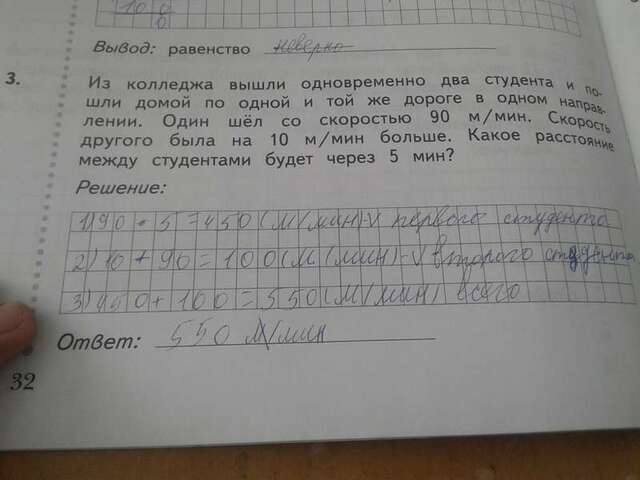 10 0
0
Вывод: равенство неверно
3.
Из колледжа вышли одновременно два студента и по-
шли домой по одной и той же дороге в одном направ-
лении. Один шёл со скоростью 90 м/мин. Скорость
другого была на 10 м/мин больше. Какое расстояние
между студентами будет через 5 мин?
Решение:
1) 90 · 5 = 450 (м/мин) - V первого студента
2) 10 + 90 = 100 (м/мин) - V второго студента
3) 450 + 100 = 550 (м/мин) всего
Ответ: 550 м/мин
32